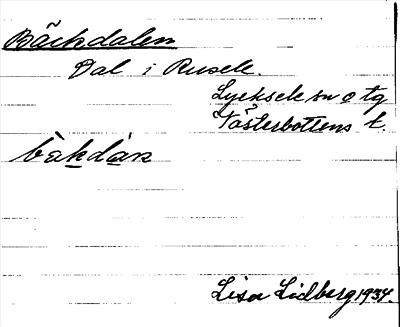 Bäckdalen
Dal i Rusele.
Lycksele sn o tg
Västerbottens l.
bàkdàn
Lisa Lidberg 1934.